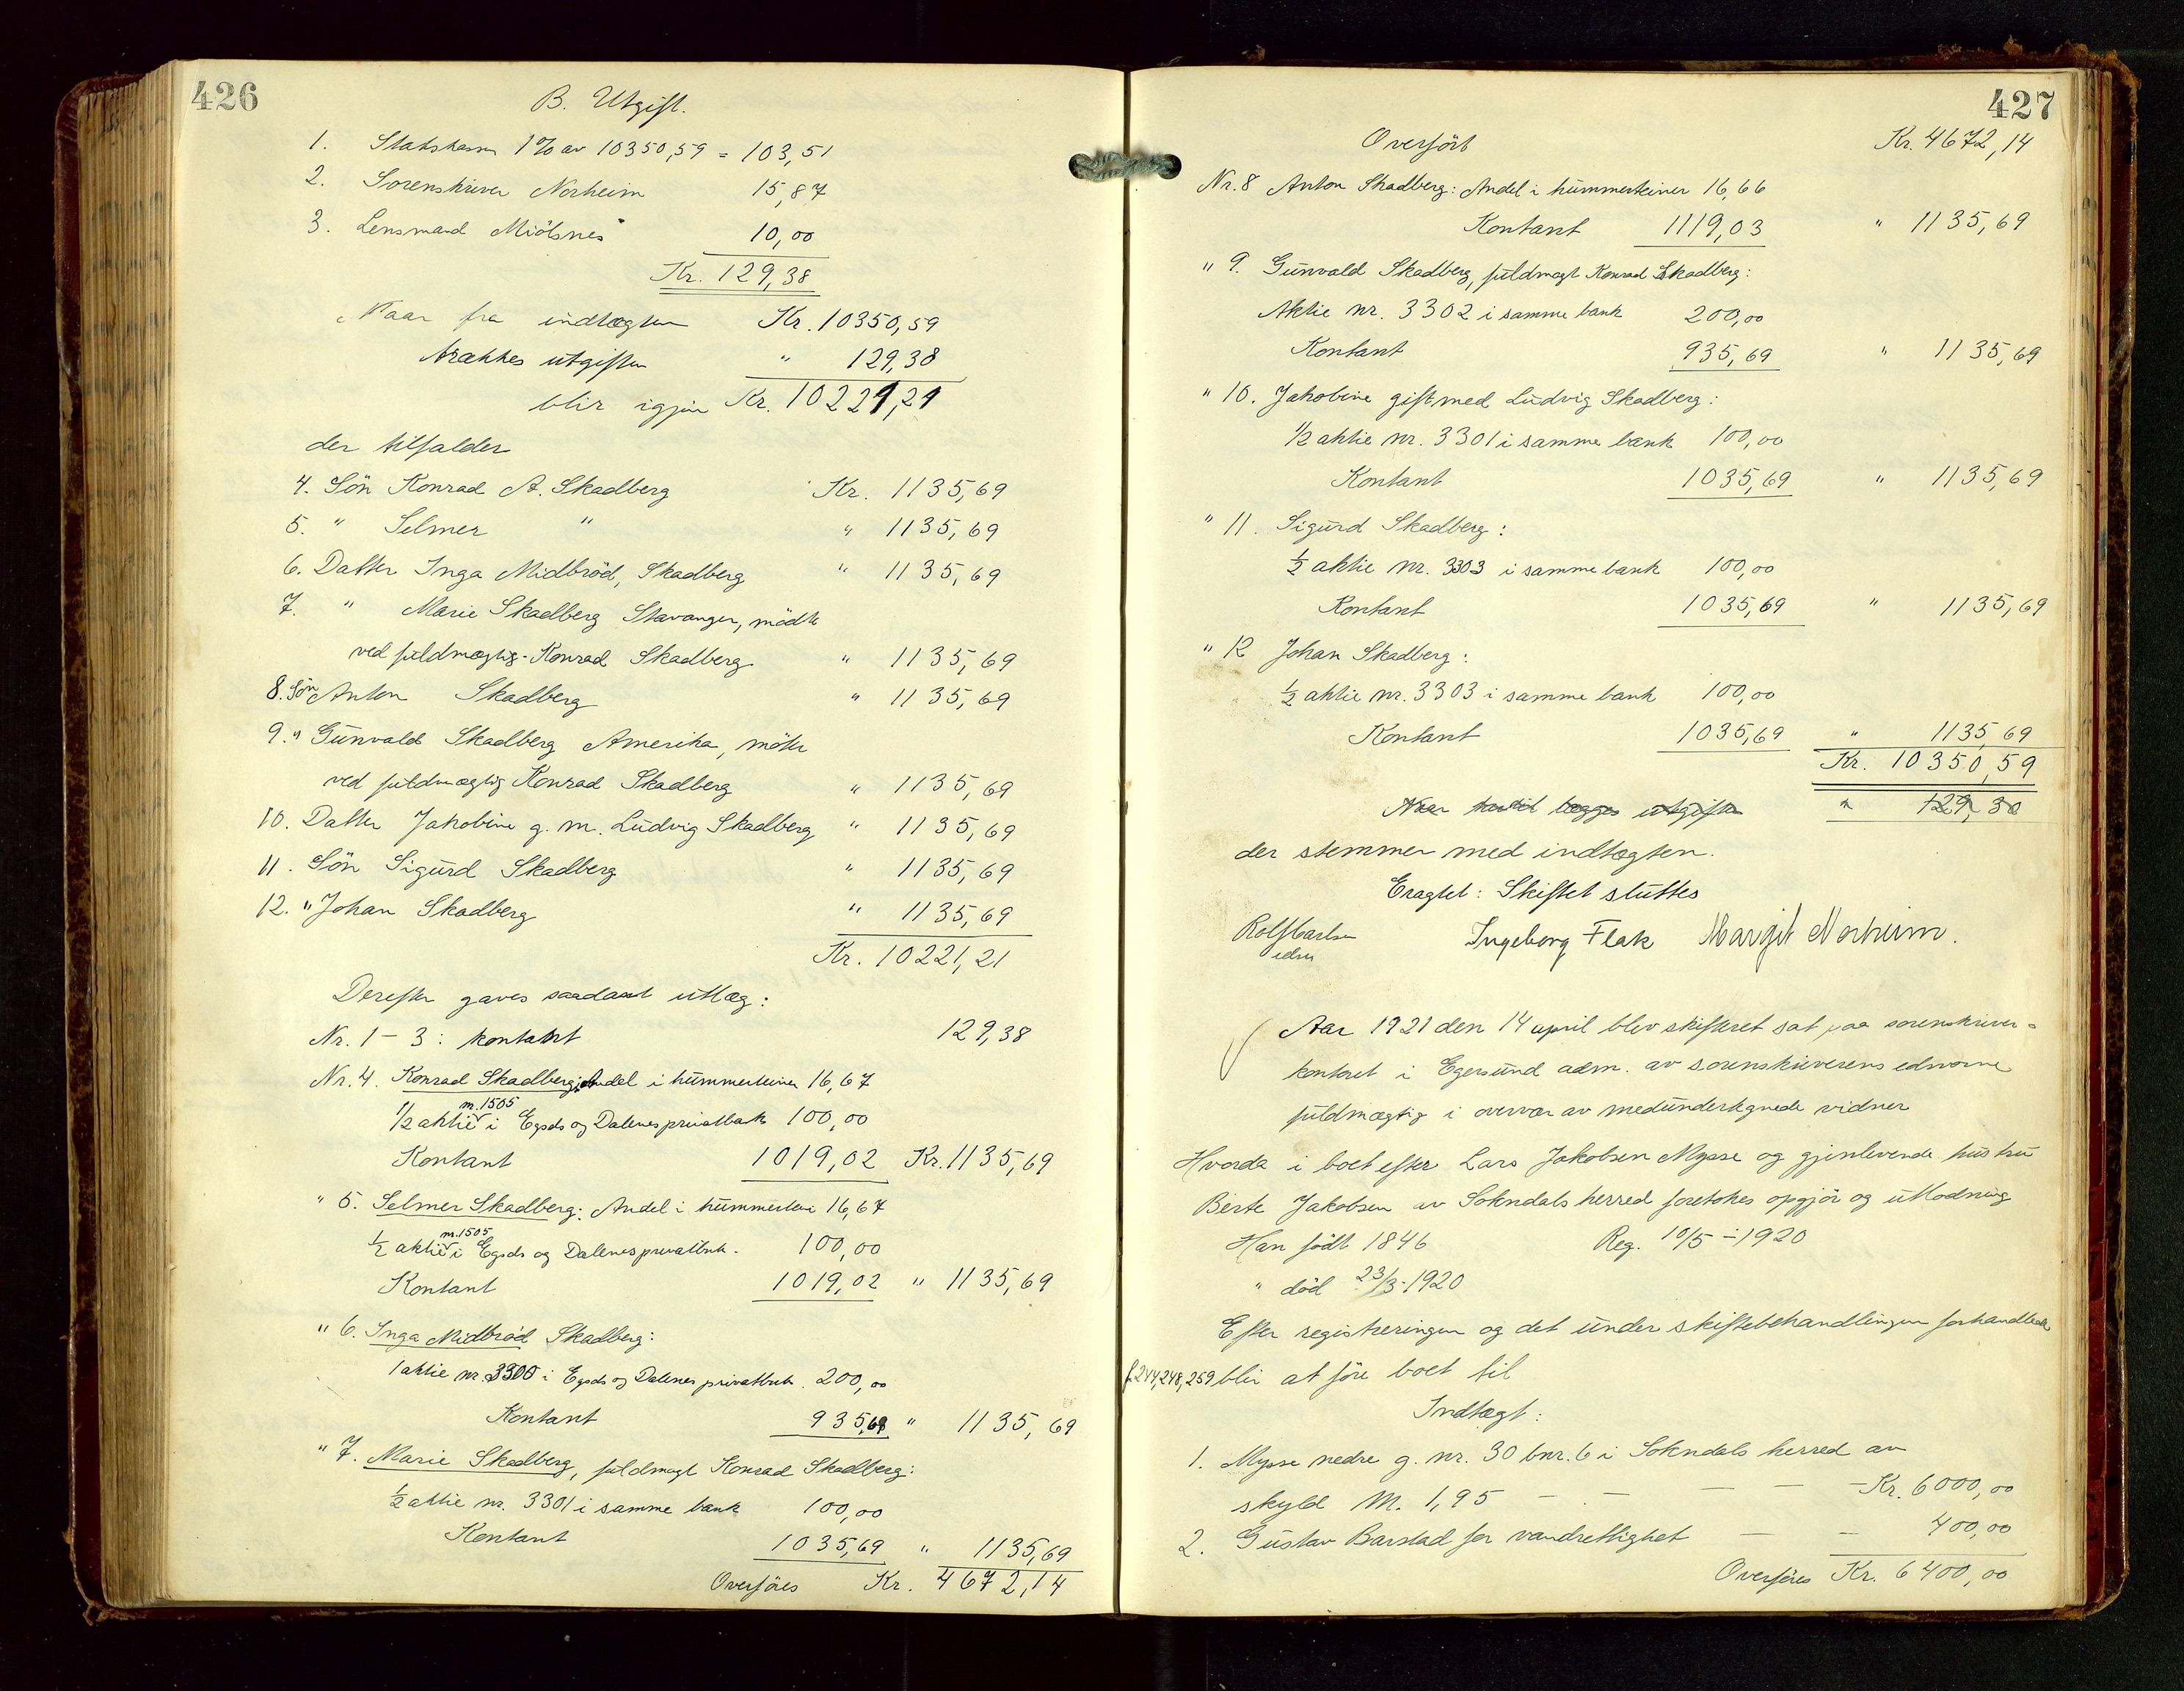 426
B. Utgift.
1. Statskassen 1% av 10350,59 = 103,51
2. Sorenskriver Norheim 15,87
3. Lensmand Miölsnes 10,00
Kr. 129,38
Naar fra indtægten Kr. 10350,59
trækkes utgiften " 129,38
blir igjen Kr. 10221,21
der tilfalder
4. Sön Konrad A. Skadberg Kr. 1135,69
5. " Selmer " " 1135,69
6. Datter Inga Midbröd, Skadberg " 1135,69
7. " Marie Skadberg Stavanger, mödte
ved fuldmægtig Konrad Skadberg " 1135,69
8. Sön Anton Skadberg " 1135,69
9. " Gunvald Skadberg Amerika, möter
ved fuldmægtig Konrad Skadberg " 1135,69
10. Datter Jakobine g. m. Ludvig Skadberg " 1135,69
11. Sön Sigurd Skadberg " 1135,69
12. " Johan Skadberg " 1135,69
Kr. 10221,21
Derefter gaves saadant utlæg:
Nr. 1 - 3: kontant 129,38
Nr. 4. Konrad Skadberg: Andel i hummerteiner 16,67
nr. 1505
1/2 aktie i Egsds og Dalenes privatbank 100,00
Kontant 1019,02 Kr. 1135,69
" 5. Selmer Skadberg: Andel i hummerteine 16,67
nr. 1505
1/2 aktie i Egsds og Dalenes privatbnk. 100,00
Kontant 1019,02 " 1135,69
" 6. Inga Midbröd Skadberg:
1 aktie nr. 3300 i Egsds og Dalenes privatbnk. 200,00
Kontant 935,69 " 1135,69
" 7. Marie Skadberg, fuldmægt Konrad Skadberg:
1/2 aktie nr. 3301 i samme bank 100,00
Kontant 1035,69 " 1135,69
Overföres Kr. 4672,14
427
Overfört Kr. 4672,14
Nr. 8 Anton Skadberg: Andel i hummerteiner 16,66
Kontant 1119,03 " 1135,69
" 9. Gunvald Skadberg, fuldmægt Konrad Skadberg:
Aktie nr. 3302 i samme bank 200,00
Kontant 935,69 " 1135,69
" 10. Jakobine gift med Ludvig Skadberg:
1/2 aktie nr. 3301 i samme bank 100,00
Kontant 1035,69 " 1135,69
" 11. Sigurd Skadberg:
1/2 aktie nr. 3303 i samme bank 100,00
Kontant 1035,69 " 1135,69
" 12 Johan Skadberg:
1/2 aktie nr. 3303 i samme bank 100,00
Kontant 1035,69 " 1135,69
Kr. 10350,59
Naar hertil lægges utgiften " 129,38
der stemmer med indtægten.
Eragtet: Skiftet sluttes
Rolf Carlsen Ingeborg Flak Margit Norheim.
edsv
Aar 1921 den 14 april blev skifteret sat paa sorenskriver-
kontoret i Egersund adm. av sorenskriverens edsvorne
fuldmægtig i overvær av medundertegnede vidner
Hvorda i boet efter Lars Jakobsen Mysse og gjenlevende hustru
Berte Jakobsen av Sokndals herred foretokes opgjör og utlodning
Han födt 1846 Reg. 10/5 - 1920
" död 23/3-1920
Efter registreringen og det under skiftebehandlingen forhandlede
f. 244, 248, 259 blir at före boet til
Indtægt:
1. Mysse nedre g. nr. 30 bnr. 6 i Sokndals herred av
skyld M. 1,95 - - - - - Kr. 6000,00
2. Gustav Barstad for vandrettighet - - 400,00
Overföres Kr. 6400,00